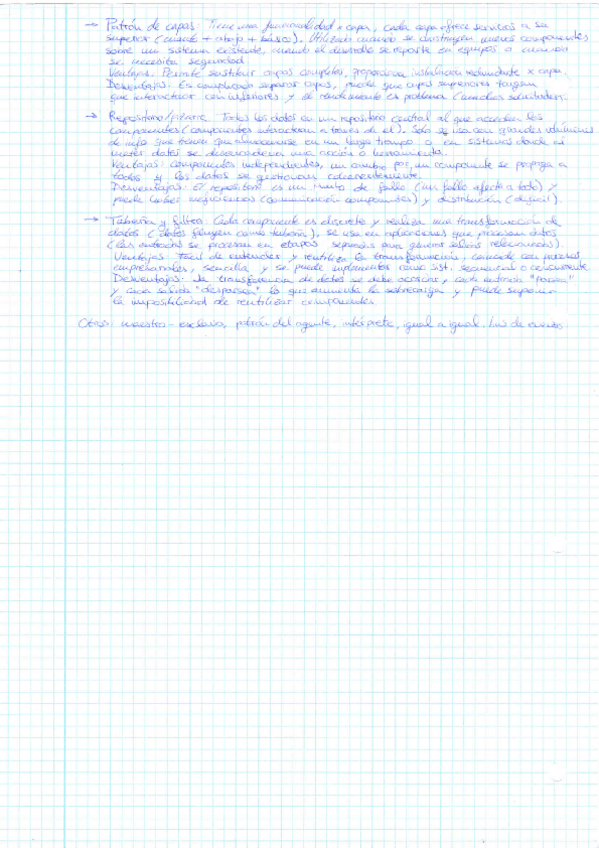 → Patrón de capas: Tiene una funcionalidad x capa, cada capa ofrece servicios a su
superior (cuanto + abajo + básico). Utilizado cuando se construyen nuevos componentes
sobre un sistema existente, cuando el desarrollo se reparte en equipos o cuando
se necesita seguridad.
Ventajas: Permite sustituir capas completas, proporciona redundante x capa.
Desventajas: Es complicado separar capas, puede que capas superiores tengan
que interactuar con inferiores y el rendimiento es problema (muchas solicitudes).
→ Repositorio/pizarra: Todos los datos en un repositorio central al que acceden los
componentes (componentes interactúan a través de él). Solo se usa con grandes volúmenes
de info que tienen que almacenarse en un largo tiempo o en sistemas donde al
meter datos se desencadena una acción o herramienta.
Ventajas: componentes independientes, un cambio por un componente se propaga a
todos y los datos se gestionan coherentemente.
Desventajas: el repositorio es un punto de fallo (un fallo afecta a todo) y
puede haber ineficiencias (comunicación componentes) y distribución (difícil)
→ Tubería y filtro: Cada componente es discreto y realiza una transformación de
datos (datos fluyen como tubería), se usa en aplicaciones que procesan datos
(las entradas se procesan en etapas separadas para generar salidas relacionadas).
Ventajas: Fácil de entender y reutiliza la transformación, coincide con procesos
empresariales, sencilla, y se puede implementar como sist. secuencial o concurrente
Desventajas: la transferencia de datos se debe acordar y cada entrada "parsea"
y cada salida "desparsea" lo que aumenta la sobrecarga y puede suponer
la imposibilidad de reutilizar componentes.
Otros: maestro-esclavo, patrón del agente, intérprete, igual a igual, bus de eventos